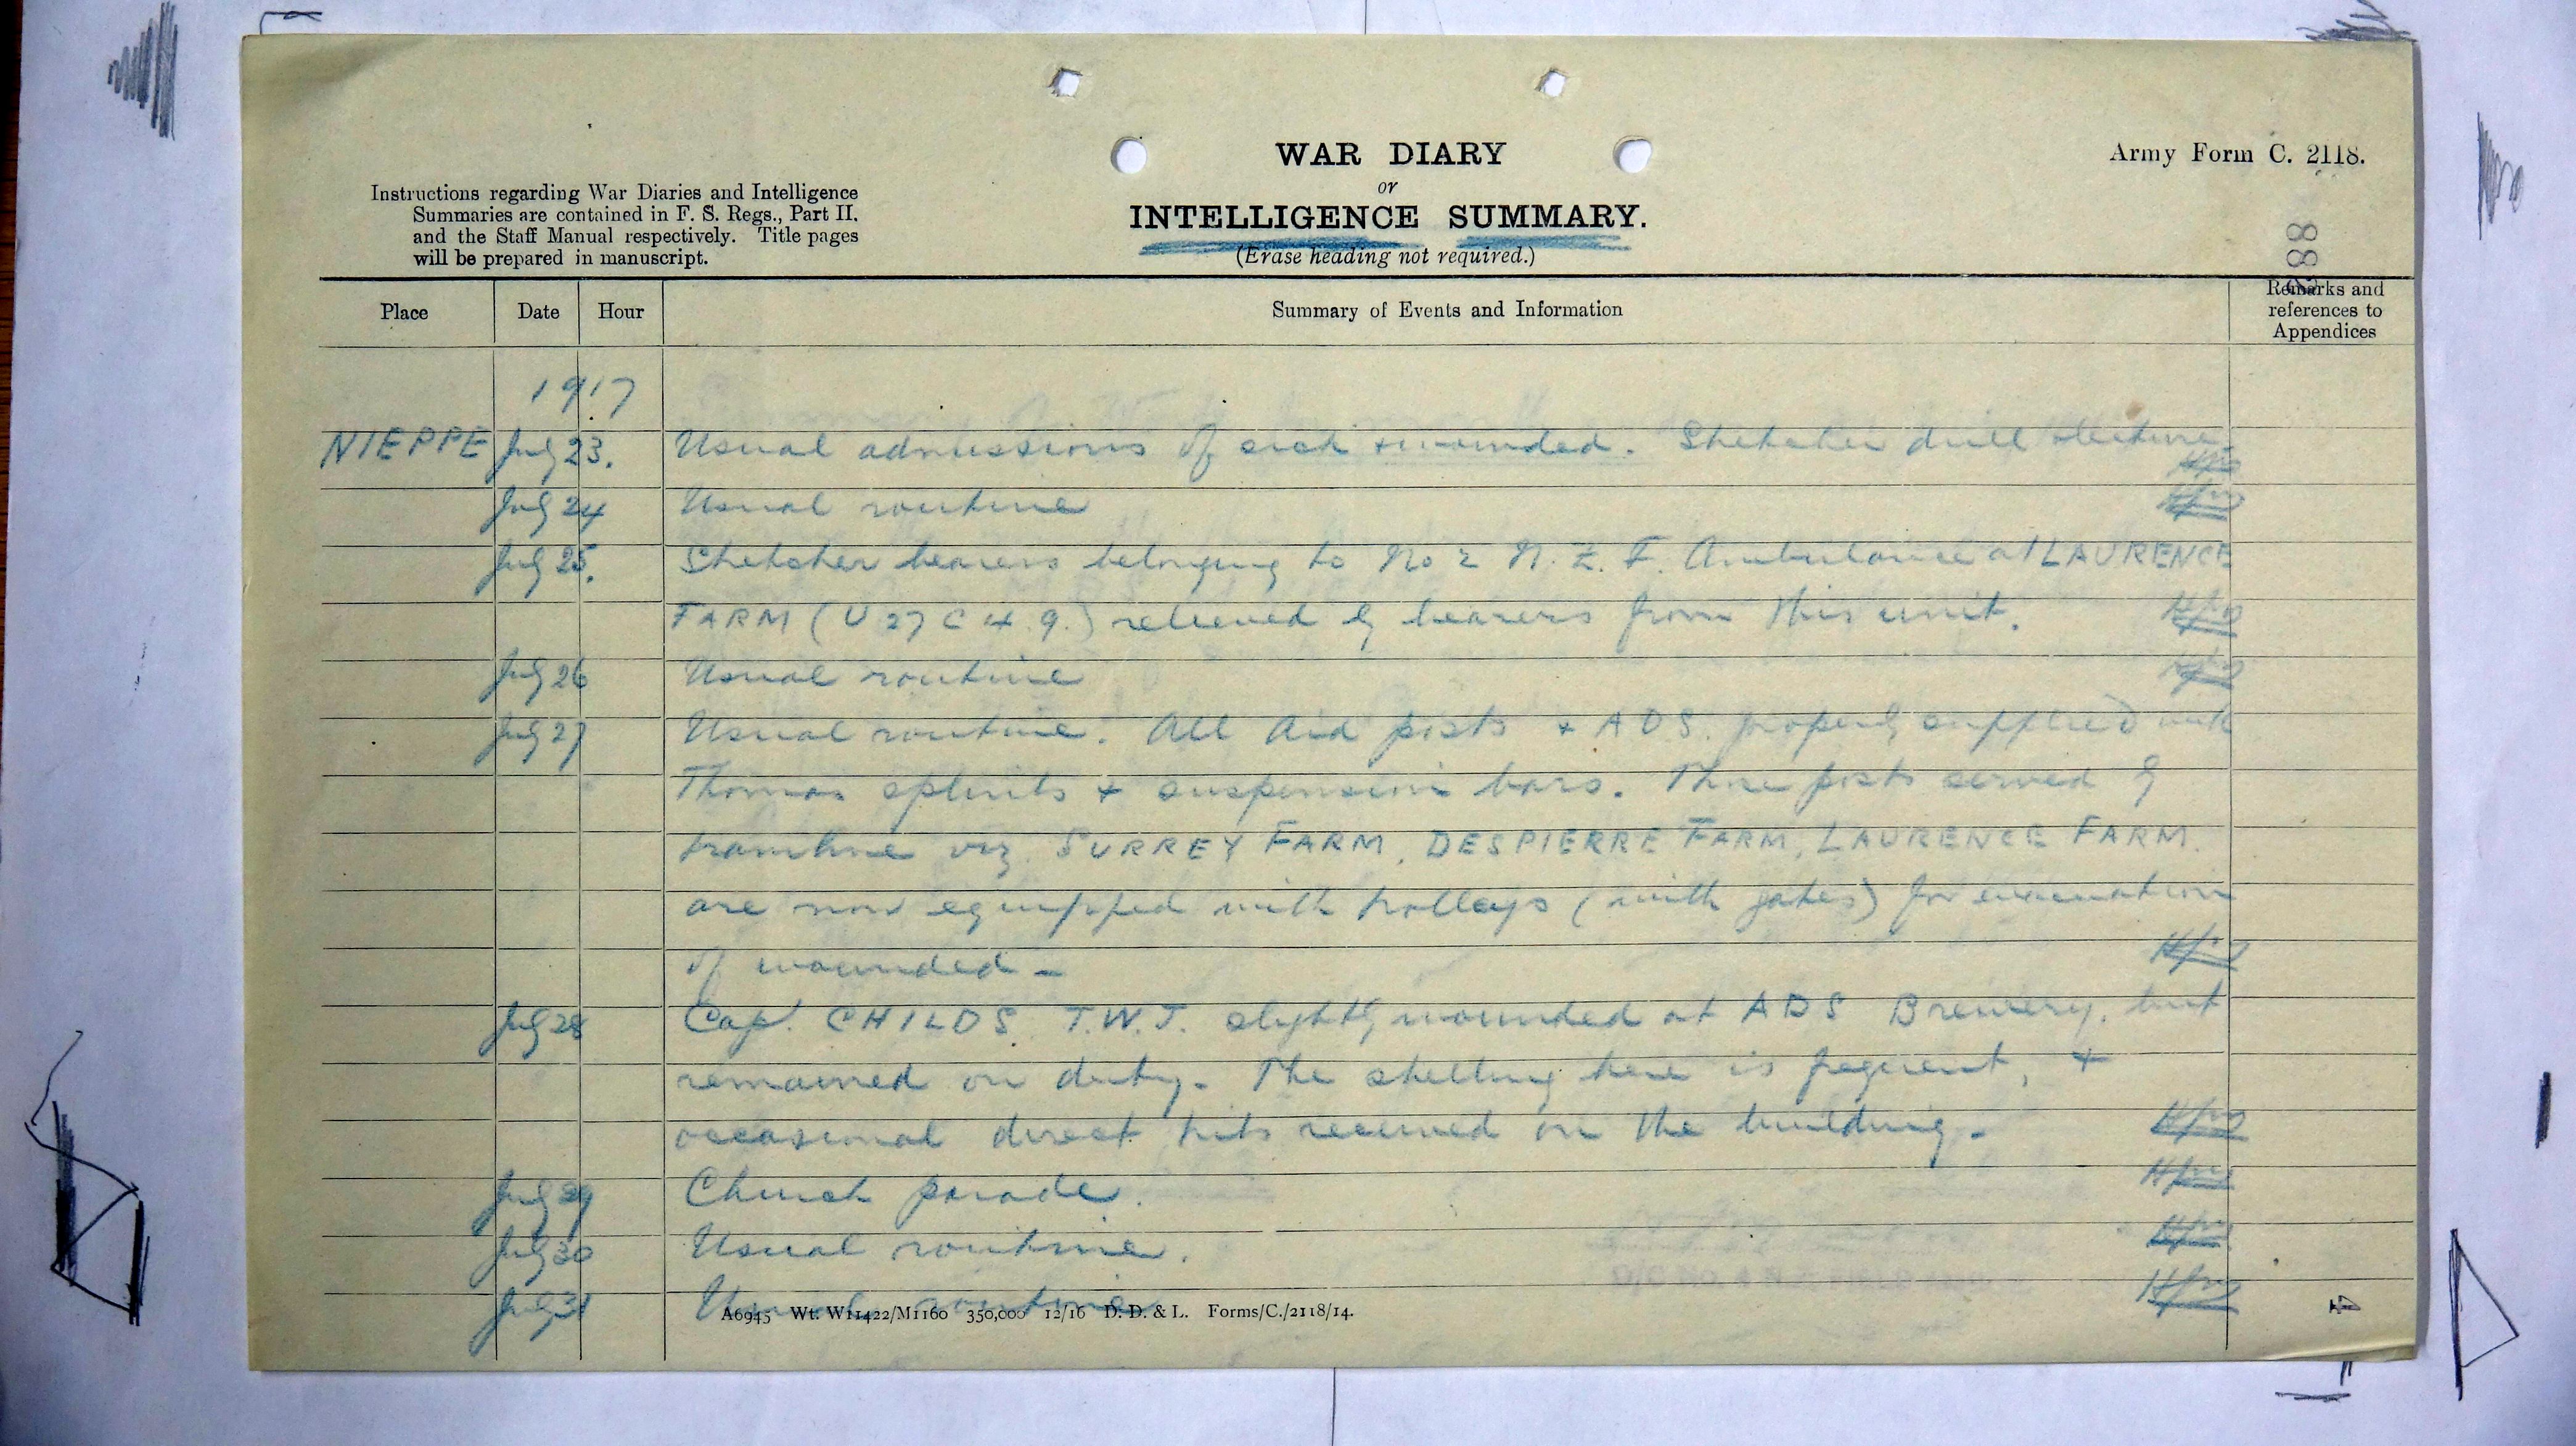 WAR DIARY
or
INTELLIGENCE SUMMARY.
(Erase heading not required.)
Army Form C. 2118.
Instructions regarding War Diaries and Intelligence
Summaries are contained in F. S. Regs., Part II.
and the Staff Manual respectively. Title pages
will be prepared in manuscript.
Place Date Hour Summary of Events and Information Remarks and references to Appendices
1917
NIEPPE July 23. Usual admissions of sick & wounded. Stretcher drill & lecture.
July 24 Usual routine
July 25. Stretcher bearers belonging to No 2 N.Z.F. Ambulance at LAURENCE
FARM (U 27 C 4.9.) relieved by bearers from this unit.
July 26 Usual routine
July 27 Usual routine. All Aid posts & ADS. properly supplied with
Thomas splints & suspension bars. Three posts served by
tramline viz. SURREY FARM, DESPIERRE FARM, LAURENCE FARM.
are now equipped with trolleys (with gates) for evacuation
of wounded -
July 28 Capt. CHILDS T.W.J. slightly wounded at ADS Brewery, but
remained on duty. The shelling here is frequent, &
occasional direct hits received on the building -
July 29 Church parade.
July 30 Usual routine.
July 31 Usual routine
A6945 Wt. W11422/M1160 350,000 12/16 D. D. & L. Forms/C./2118/14.